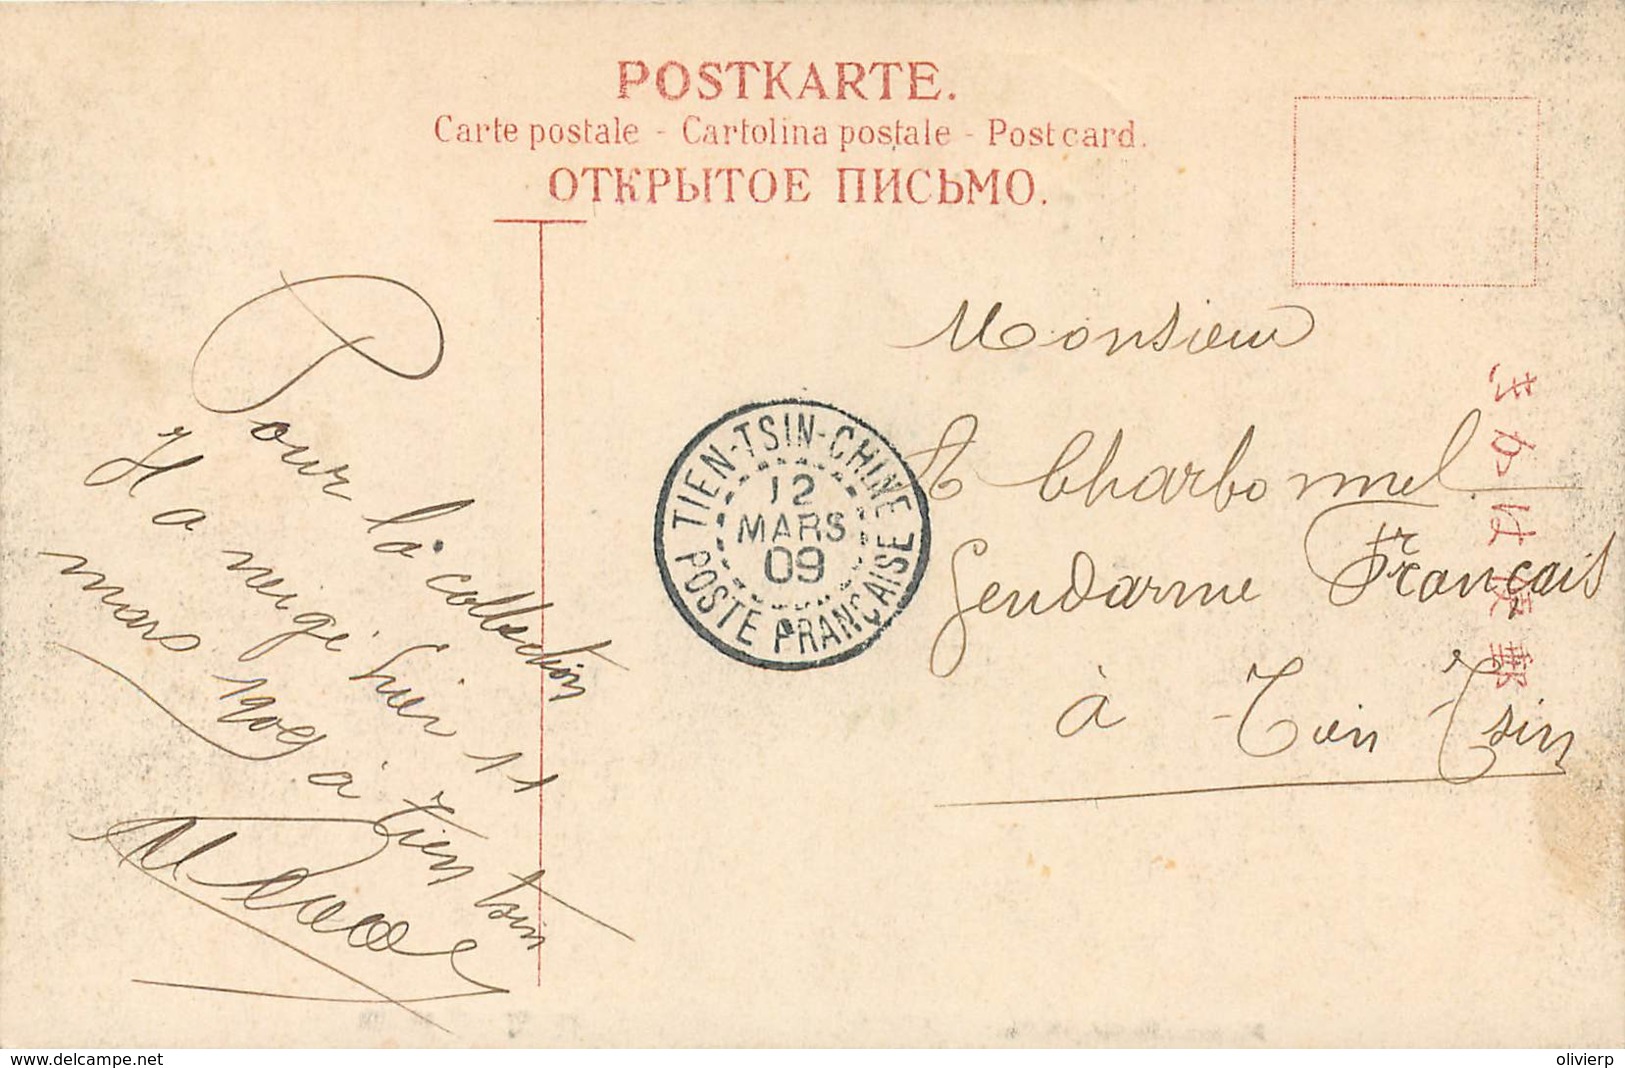 POSTKARTE.
Carte postale - Cartolina postale - Post card.
ОТКРЫТОЕ ПИСЬМО.
Pour la collection
Il a neigé hier 11
mars 1909 à Tien Tsin
TIEN-TSIN-CHINE
12
MARS
09
POSTE FRANÇAISE
Monsieur
Charbonnel
Gendarme Français
à Tien Tsin
www.delcampe.net
olivierp